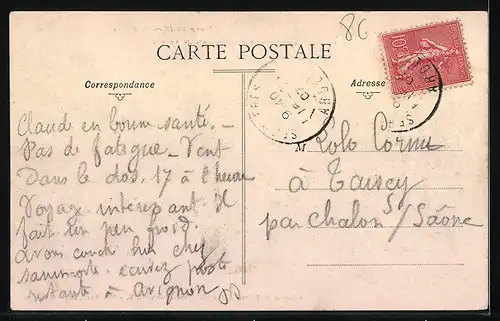 86
CARTE POSTALE
Correspondance
Adresse
Claude en bonne santé. -
Pas de fatigue - Vent
Dans le dos. 17 à l'heure
Voyage intéressant Il
fait un peu froid.
avons couché hier chez
écrivez poste
restante à Avignon
M
Polo Cornu
à Taisey
par Chalon s/Saône
10